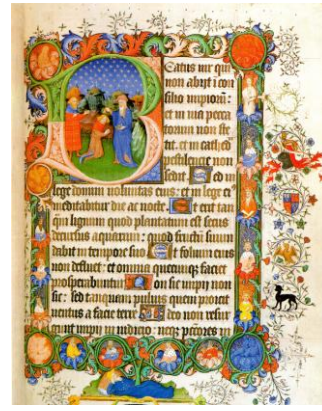 Beatus uir qui
non abijt i con
silio impiorū:
et in uia pecca
torum non ste
tit. et in cathed
pestilencie non
sedit. Sed in
lege domini uoluntas eius: et in lege ei
meditabitur die ac nocte. Et erit tan
q̄m lignum quod plantatum est secus
decursus aquarum: quod fructū suum
dabit in tempore suo Et folium eius
non defluet: et omnia quecumqȝ faciet
prosperabuntur Non sic impij non
sic: sed tanquam puluis quem proicit
uentus a facie terre Ideo non resur
gunt impij in iudicio: neqȝ pctores in